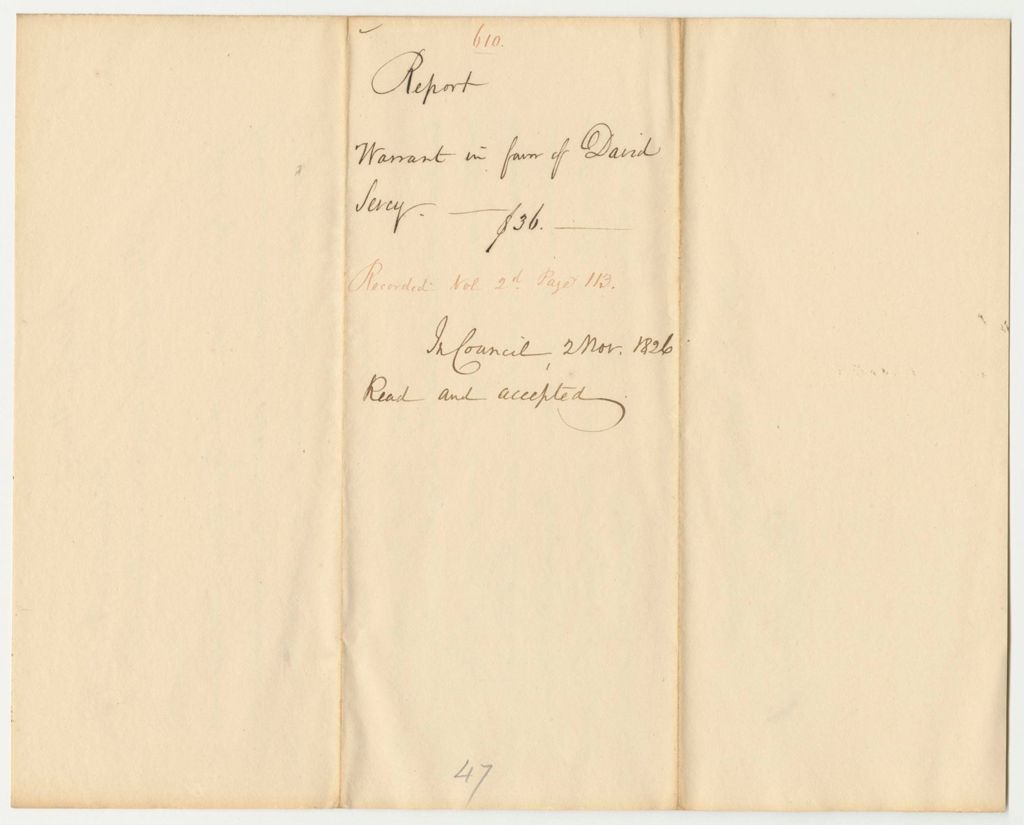 610.
Report
Warrant in favor of David
Sevey. — $36. —
Recorded Vol 2d Page 113.
In Council, 2 Nov. 1826
Read and accepted
47